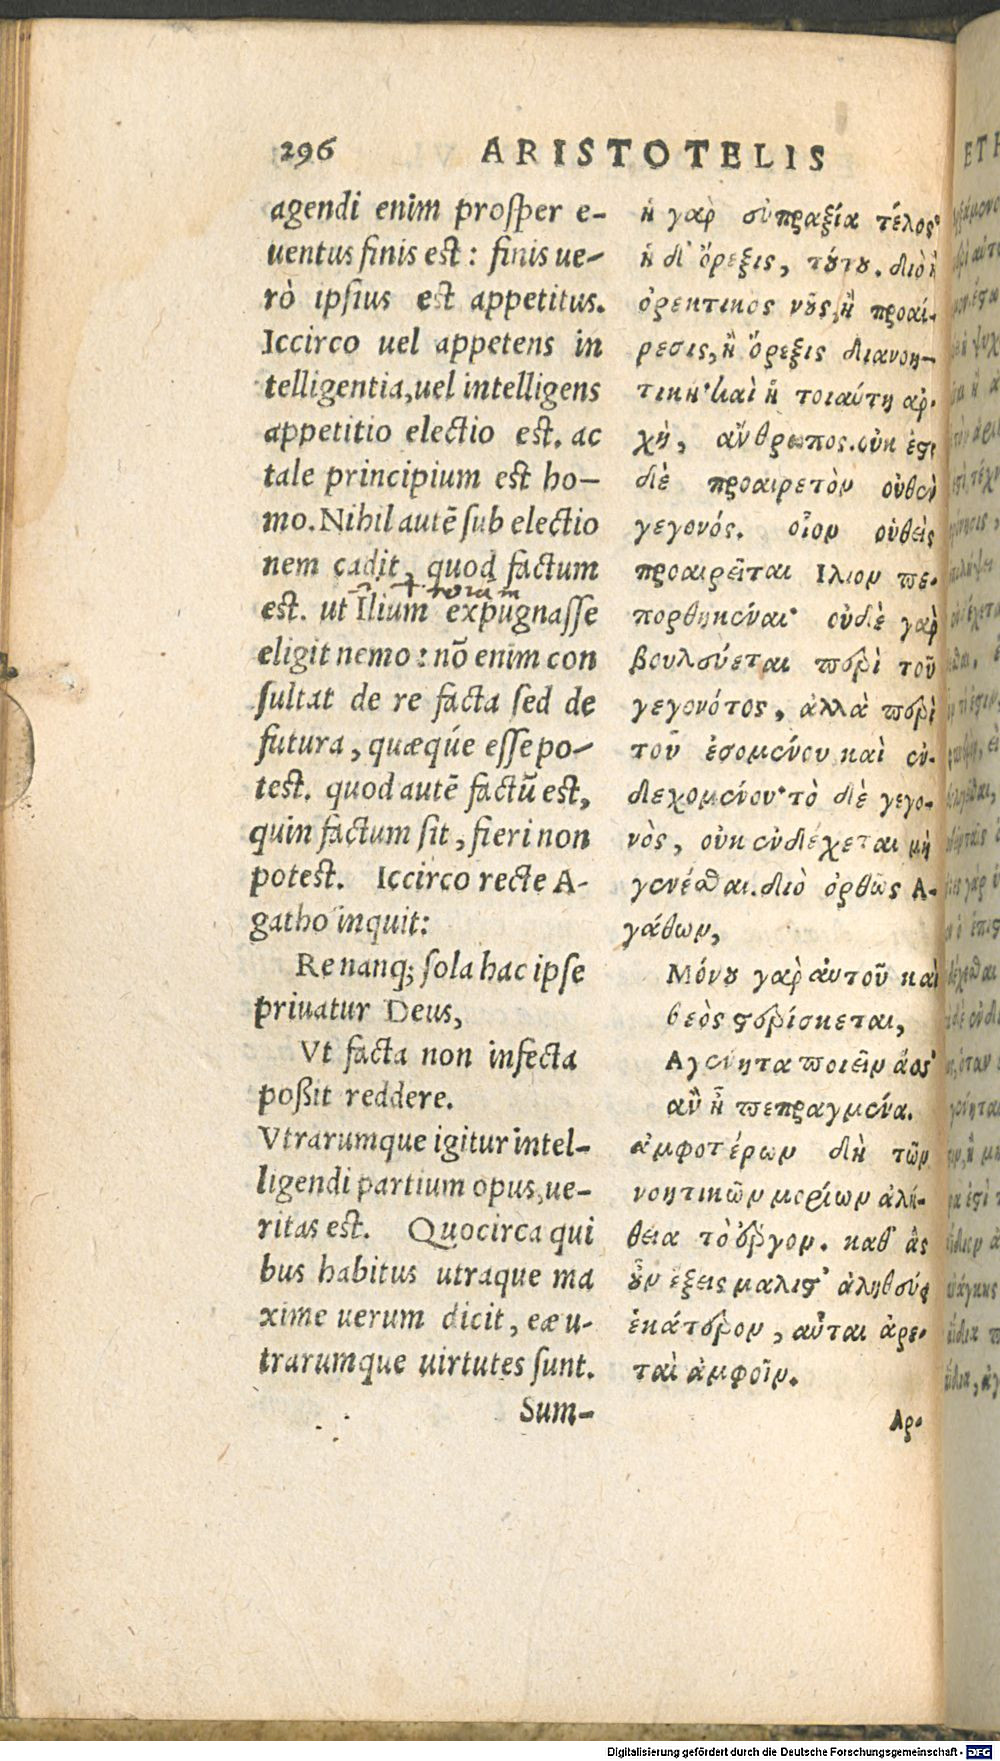 296 ARISTOTELIS
agendi enim proſper e-
uentus finis est: finis ue-
rò ipſius est appetitus.
Iccirco uel appetens in
telligentia, uel intelligens
appetitio electio est. ac
tale principium est ho-
mo. Nihil autē ſub electio
nem cadit, quod factum
est. ut Ilium expugnaſſe
eligit nemo: nō enim con
ſultat de re facta ſed de
futura, quæqúe eſſe po-
test. quod autē factū est,
quin factum ſit, fieri non
potest. Iccirco recte A-
gatho inquit:
Re nanq; ſola hac ipſe
priuatur Deus,
Vt facta non infecta
poßit reddere.
Vtrarumque igitur intel-
ligendi partium opus, ue-
ritas est. Quocirca qui
bus habitus utraque ma
xime uerum dicit, eæ u-
trarumque uirtutes ſunt.
Sum-
ἡ γὰρ εὐπραξία τέλος·
ἡ δ' ὄρεξις, τούτου. διὸ ἢ
ὀρεκτικὸς νοῦς, ἡ προαί-
ρεσις, ἢ ὄρεξις διανοη-
τική· καὶ ἡ τοιαύτη ἀρ-
χὴ, ἄνθρωπος. οὐκ ἔστι
δὲ προαιρετὸν οὐθὲν
γεγονός. οἷον οὐθεὶς
προαιρεῖται Ιλιον πε-
πορθηκέναι· οὐδὲ γὰρ
βουλεύεται περὶ τοῦ
γεγονότος, ἀλλὰ περὶ
τοῦ ἐσομένου καὶ ἐν-
δεχομένου· τὸ δὲ γεγο-
νὸς, οὐκ ἐνδέχεται μὴ
γενέσθαι. διὸ ὀρθῶς Ἀ-
γάθων,
Μόνου γὰρ αὐτοῦ καὶ
θεὸς στερίσκεται,
Αγένητα ποιεῖν ἅσσ'
ἂν ᾖ πεπραγμένα.
ἀμφοτέρων δὴ τῶν
νοητικῶν μορίων ἀλή-
θεια τὸ ἔργον. καθ' ἃς
οὖν ἕξεις μάλιστ' ἀληθεύσ
ἑκάτερον, αὗται ἀρε-
ταὶ ἀμφοῖν.
Αρ-
Digitalisierung gefördert durch die Deutsche Forschungsgemeinschaft - DFG